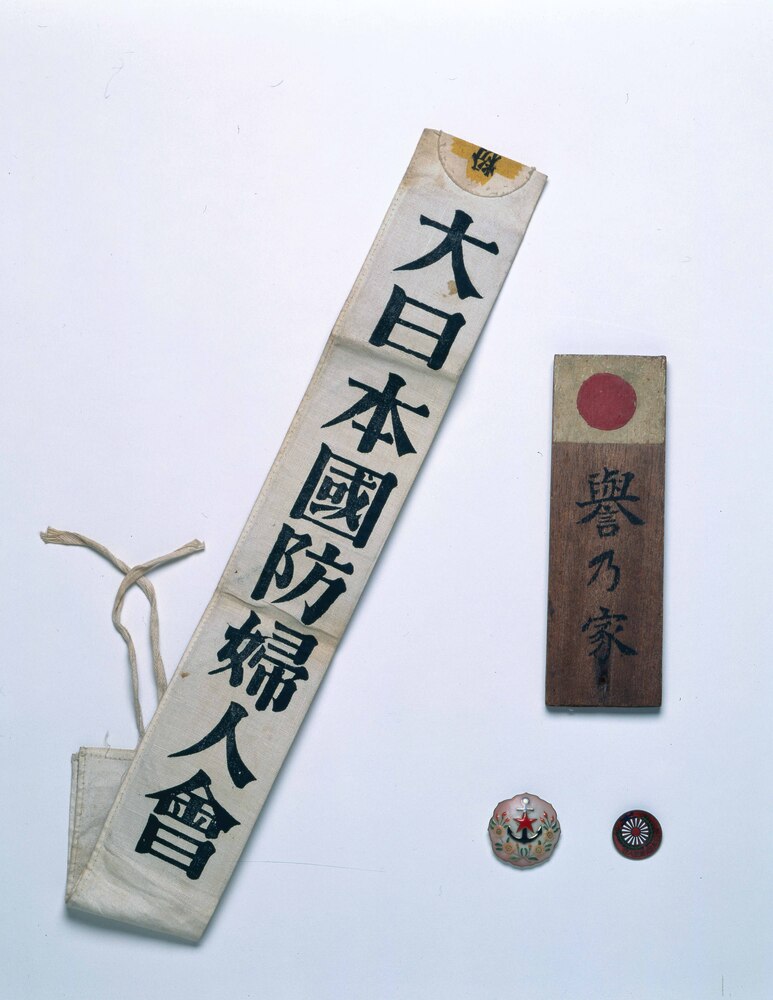 大日本國防婦人會
譽乃家